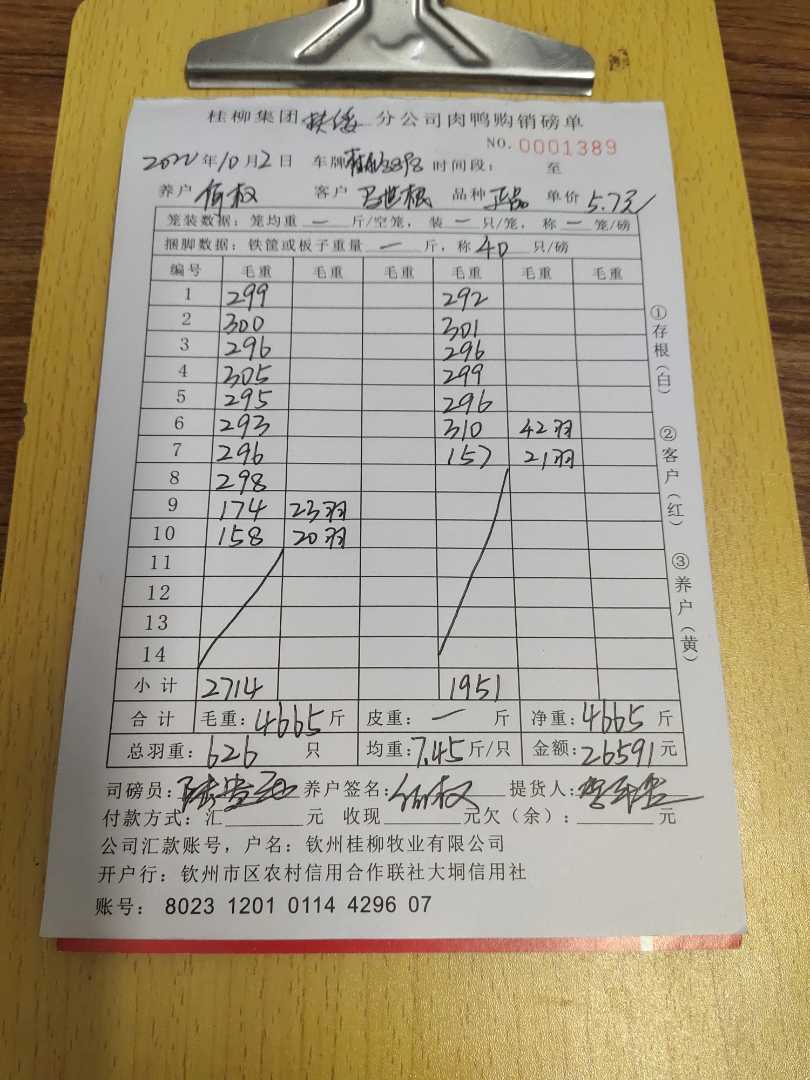 桂柳集团扶绥分公司肉鸭购销磅单
NO. 0001389
2022年10月2日 车牌 时间段: 至
养户 何权 客户 马世根 品种 正品 单价 5.7元/
笼装数据: 笼均重 一 斤/空笼, 装 一 只/笼, 称 一 笼/磅
捆脚数据: 铁筐或板子重量 一 斤, 称 40 只/磅
编号 毛重 毛重 毛重 毛重 毛重 毛重
1 299 292
2 300 301
3 296 296
4 305 299
5 295 296
6 293 310 42羽
7 296 157 21羽
8 298
9 174 23羽
10 158 20羽
11
12
13
14
小计 2714 1951
合计 毛重: 4665斤 皮重: 一 斤 净重: 4665斤
总羽重: 626 只 均重: 7.45斤/只 金额: 26591元
司磅员: 养户签名: 何权 提货人:
付款方式: 汇 元 收现 元欠(余): 元
公司汇款账号, 户名: 钦州桂柳牧业有限公司
开户行: 钦州市区农村信用合作联社大垌信用社
账号: 8023 1201 0114 4296 07
①存根(白)
②客户(红)
③养户(黄)